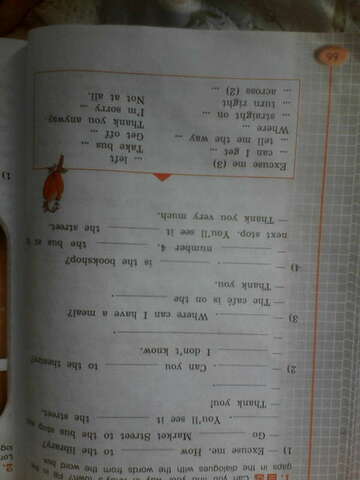 1. Can you find your way in Andy's town? Fill in the
gaps in the dialogues with the words from the word box.
1) — Excuse me. How ______ to the library?
— Go ______ Market Street to the bus stop
______. You'll see it ______ the street.
— Thank you!
2) — ______. Can you ______ to the theatre?
— ______ I don't know.
— ______
3) — ______ Where can I have a meal?
— The café is on the ______
— Thank you.
4) — ______ is the bookshop?
— ______ number 4, ______ the bus at
next stop. You'll see it ______ the street.
— Thank you very much.
Excuse me (3)
... can I get ...
... tell me the way ...
Where ...
... straight on ...
... turn right
... across (2) ...
... left
Take bus ...
Get off ...
Thank you anyway.
I'm sorry ...
Not at all.
2.
1)